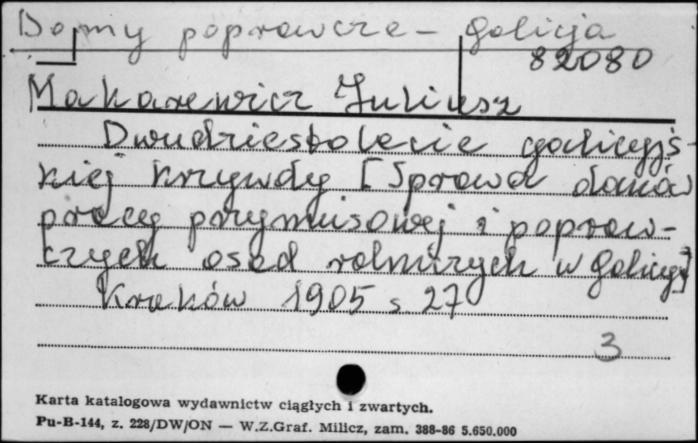 Domy poprawcze - Galicja
82080
Makarewicz Juliusz
Dwudziestolecie galicyjs-
kiej krzywdy [Sprawa domów
pracy przymusowej i popraw-
czych osad rolniczych w Galicyi]
Kraków 1905 s 27
3
Karta katalogowa wydawnictw ciągłych i zwartych.
Pu-B-144, z. 228/DW/ON — W.Z.Graf. Milicz, zam. 388-86 5.650.000